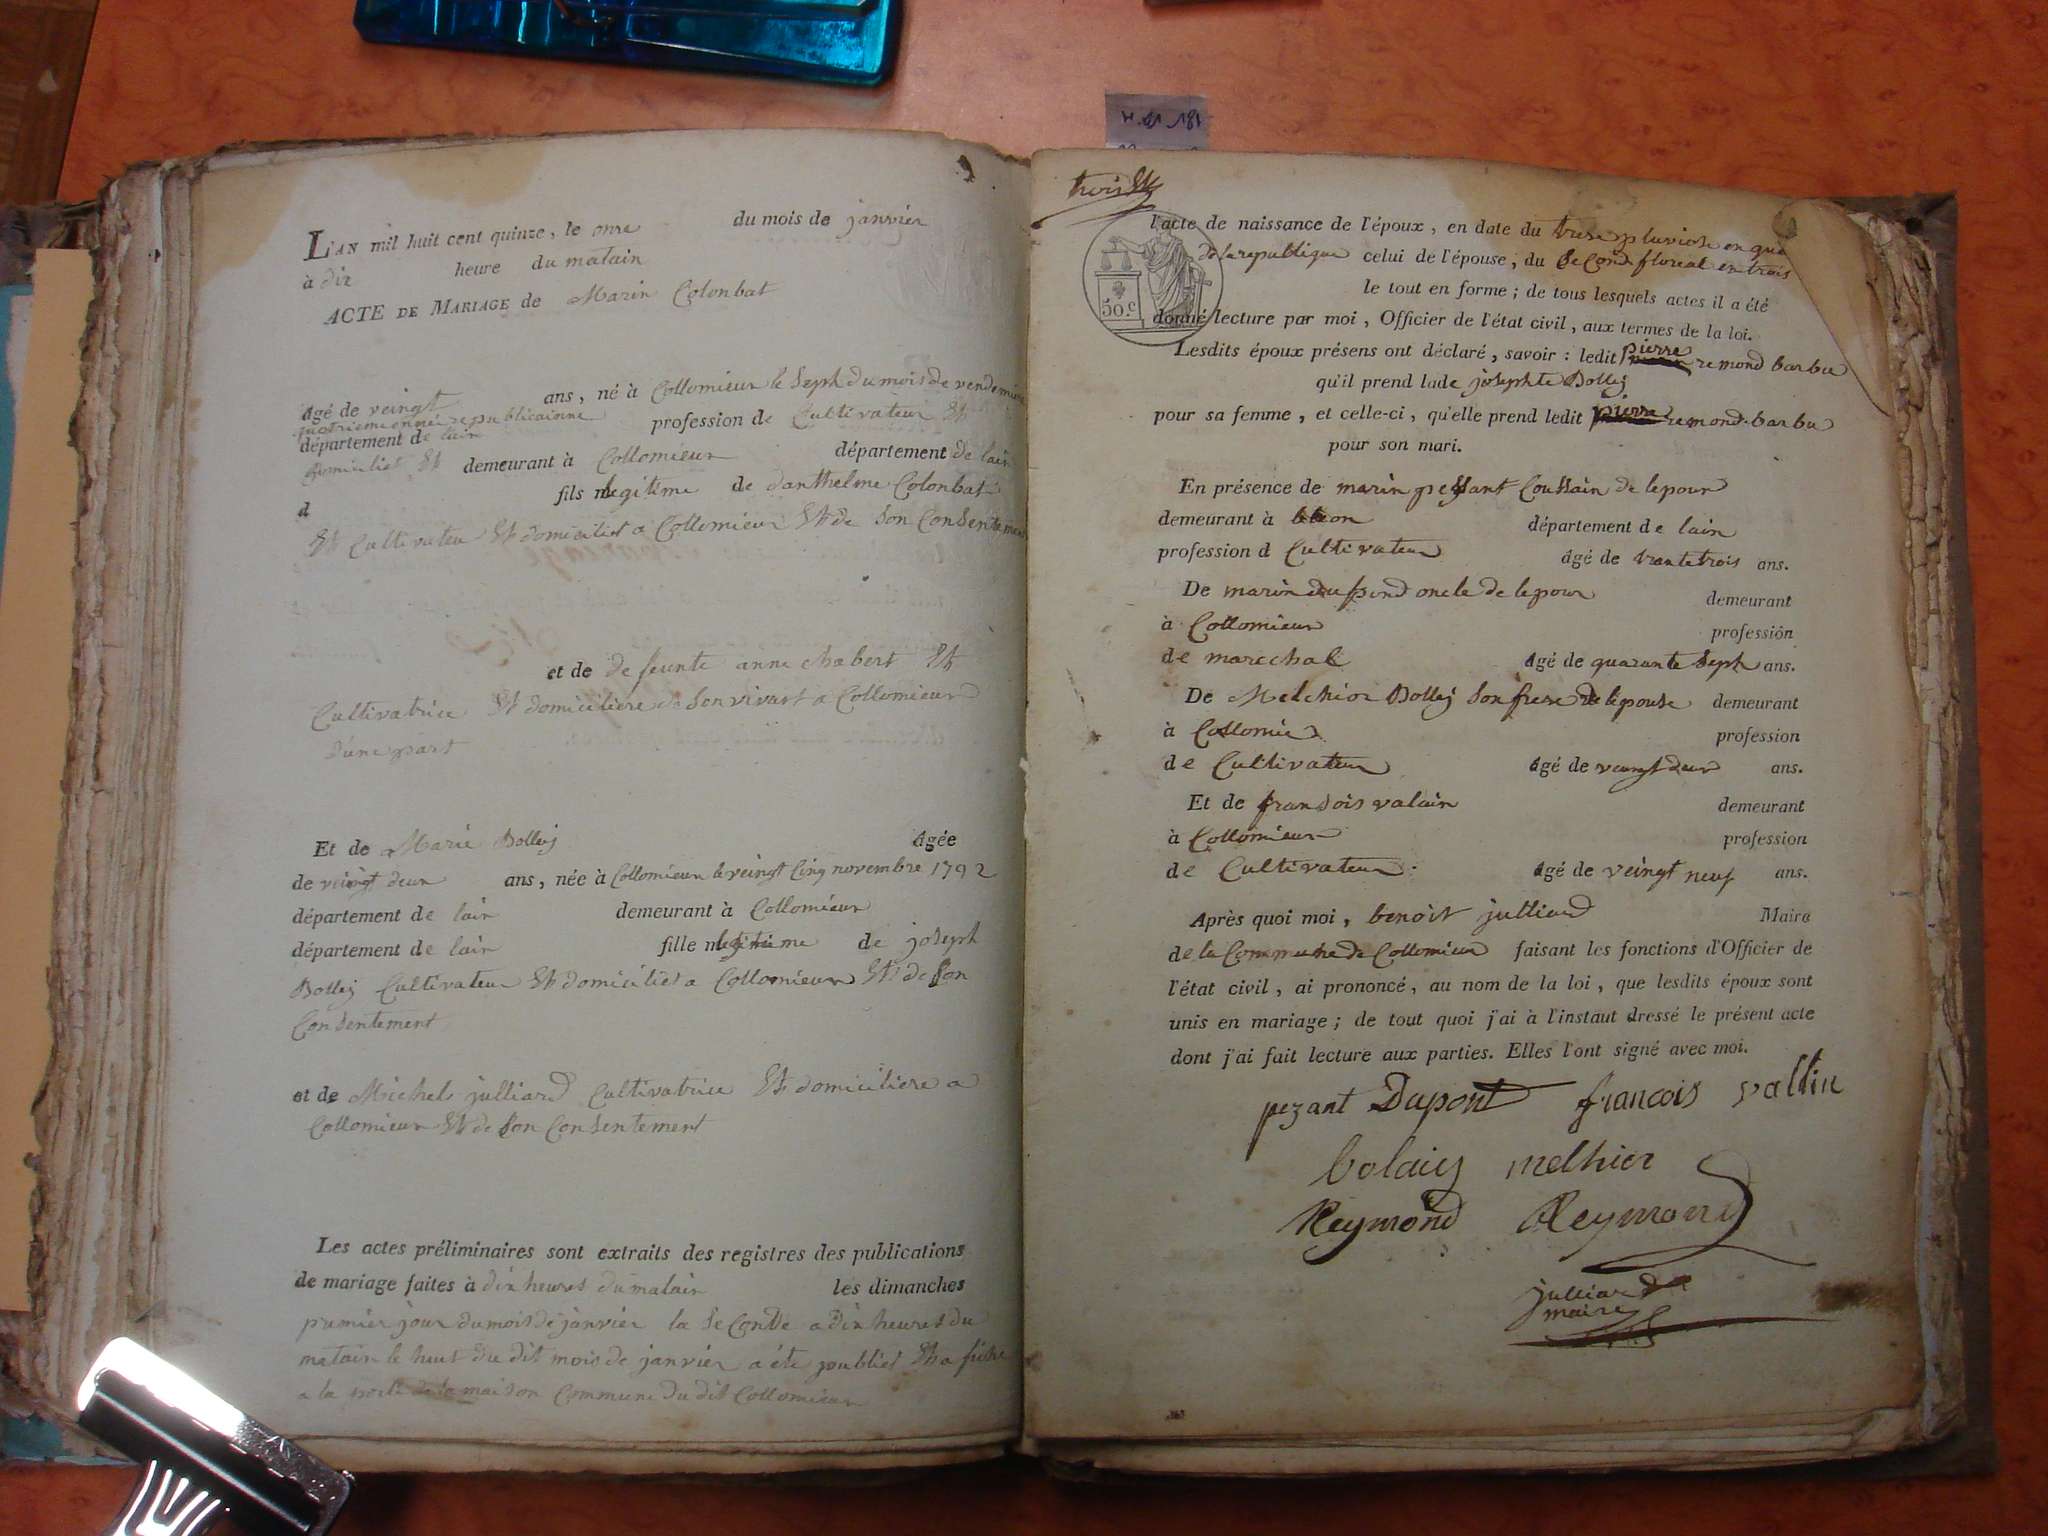 L'AN mil huit cent quinze, le onze du mois de janvier
à dix heure du matain
ACTE DE MARIAGE de Marin Colonbat
âgé de veingt ans, né à Collomieux le Seph du mois de vendemi
quatrieme année republicainne
département de lain profession de Cultivateur Et
domiciliet Et demeurant à Collomieux département de lain
d fils legitime de danthelme Colonbat
Et Cultivateu Et domiciliet a Collomieux Et de Son Consentement
et de de feunte anne chabert Et
Cultivatrice Et domiciliere de Son vivant a Collomieux
d'une part
Et de Marie Bolley âgée
de veingt deux ans, née à Collomieux le veingt Cinq novembre 1792
département de lain demeurant à Collomieux
département de lain fille legitime de joseph
Bolley Cultivateur Et domiciliet a Collomieux Et de Son
Consentement
et de Michel julliard Cultivatrice Et domiciliere a
Collomieux Et de Son Consentement
Les actes préliminaires sont extraits des registres des publications
de mariage faites à dix heures du matain les dimanches
premier jour du mois de janvier la Seconde a dix heures du
matain le huit du dit mois de janvier a été publiet Et a fiche
a la porte de la maison Commune du dit Collomieux
trois
l'acte de naissance de l'époux, en date du treze pluviose en qua
de la republique celui de l'épouse, du Second floreal en trois
le tout en forme; de tous lesquels actes il a été
donné lecture par moi, Officier de l'état civil, aux termes de la loi.
Lesdits époux présens ont déclaré, savoir : ledit pierre remond barbu
qu'il prend lade josephte Bolley
pour sa femme, et celle-ci, qu'elle prend ledit pierre remond barbu
pour son mari.
En présence de marin pezant Coussain de lepoux
demeurant à département de lain
profession d Cultivateur âgé de trante trois ans.
De marin dupond oncle de lepoux demeurant
à Collomieux profession
de marechal âgé de quarante Seph ans.
De Melchior Bolley Son frere de lepouse demeurant
à Collomieu profession
de Cultivateur âgé de veingt deux ans.
Et de fransois valain demeurant
à Collomieux profession
de Cultivateur âgé de veingt neuf ans.
Après quoi moi, benoit julliard Maire
de la Commune de Collomieux faisant les fonctions d'Officier de
l'état civil, ai prononcé, au nom de la loi, que lesdits époux sont
unis en mariage; de tout quoi j'ai à l'instant dressé le présent acte
dont j'ai fait lecture aux parties. Elles l'ont signé avec moi.
pezant Dupont francois vallin
bolaiy melhier
Reymond Reymond
julliard
maire
50.c